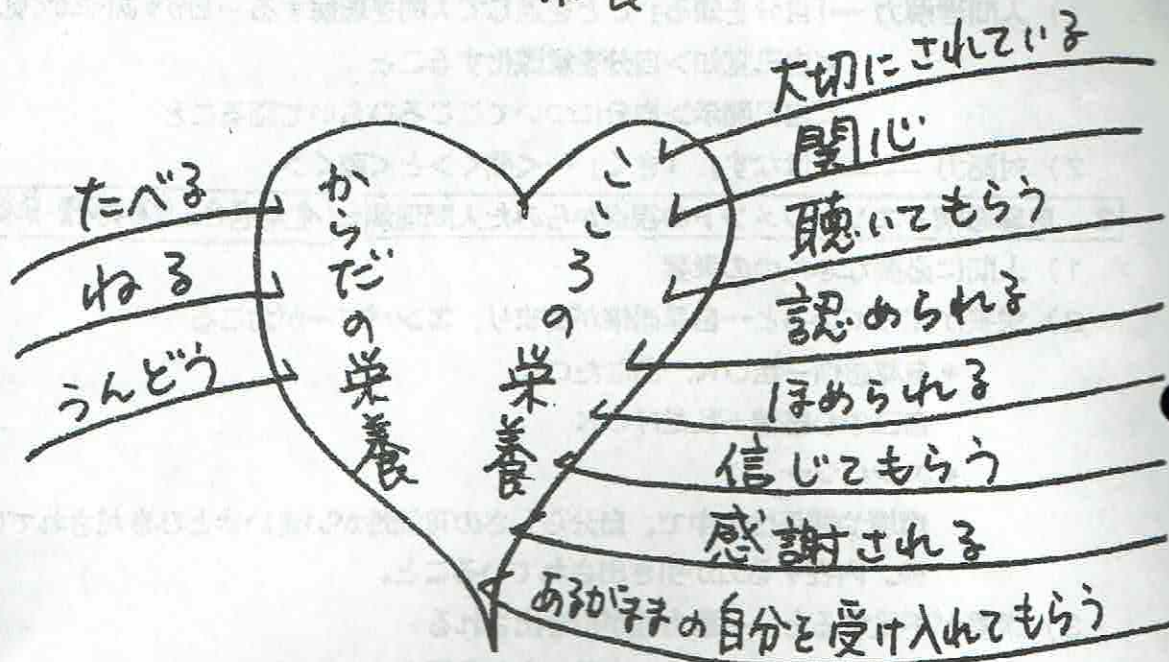 たべる
ねる
うんどう
からだの栄養
こころの栄養
大切にされている
関心
聴いてもらう
認められる
ほめられる
信じてもらう
感謝される
あるがままの自分を受け入れてもらう